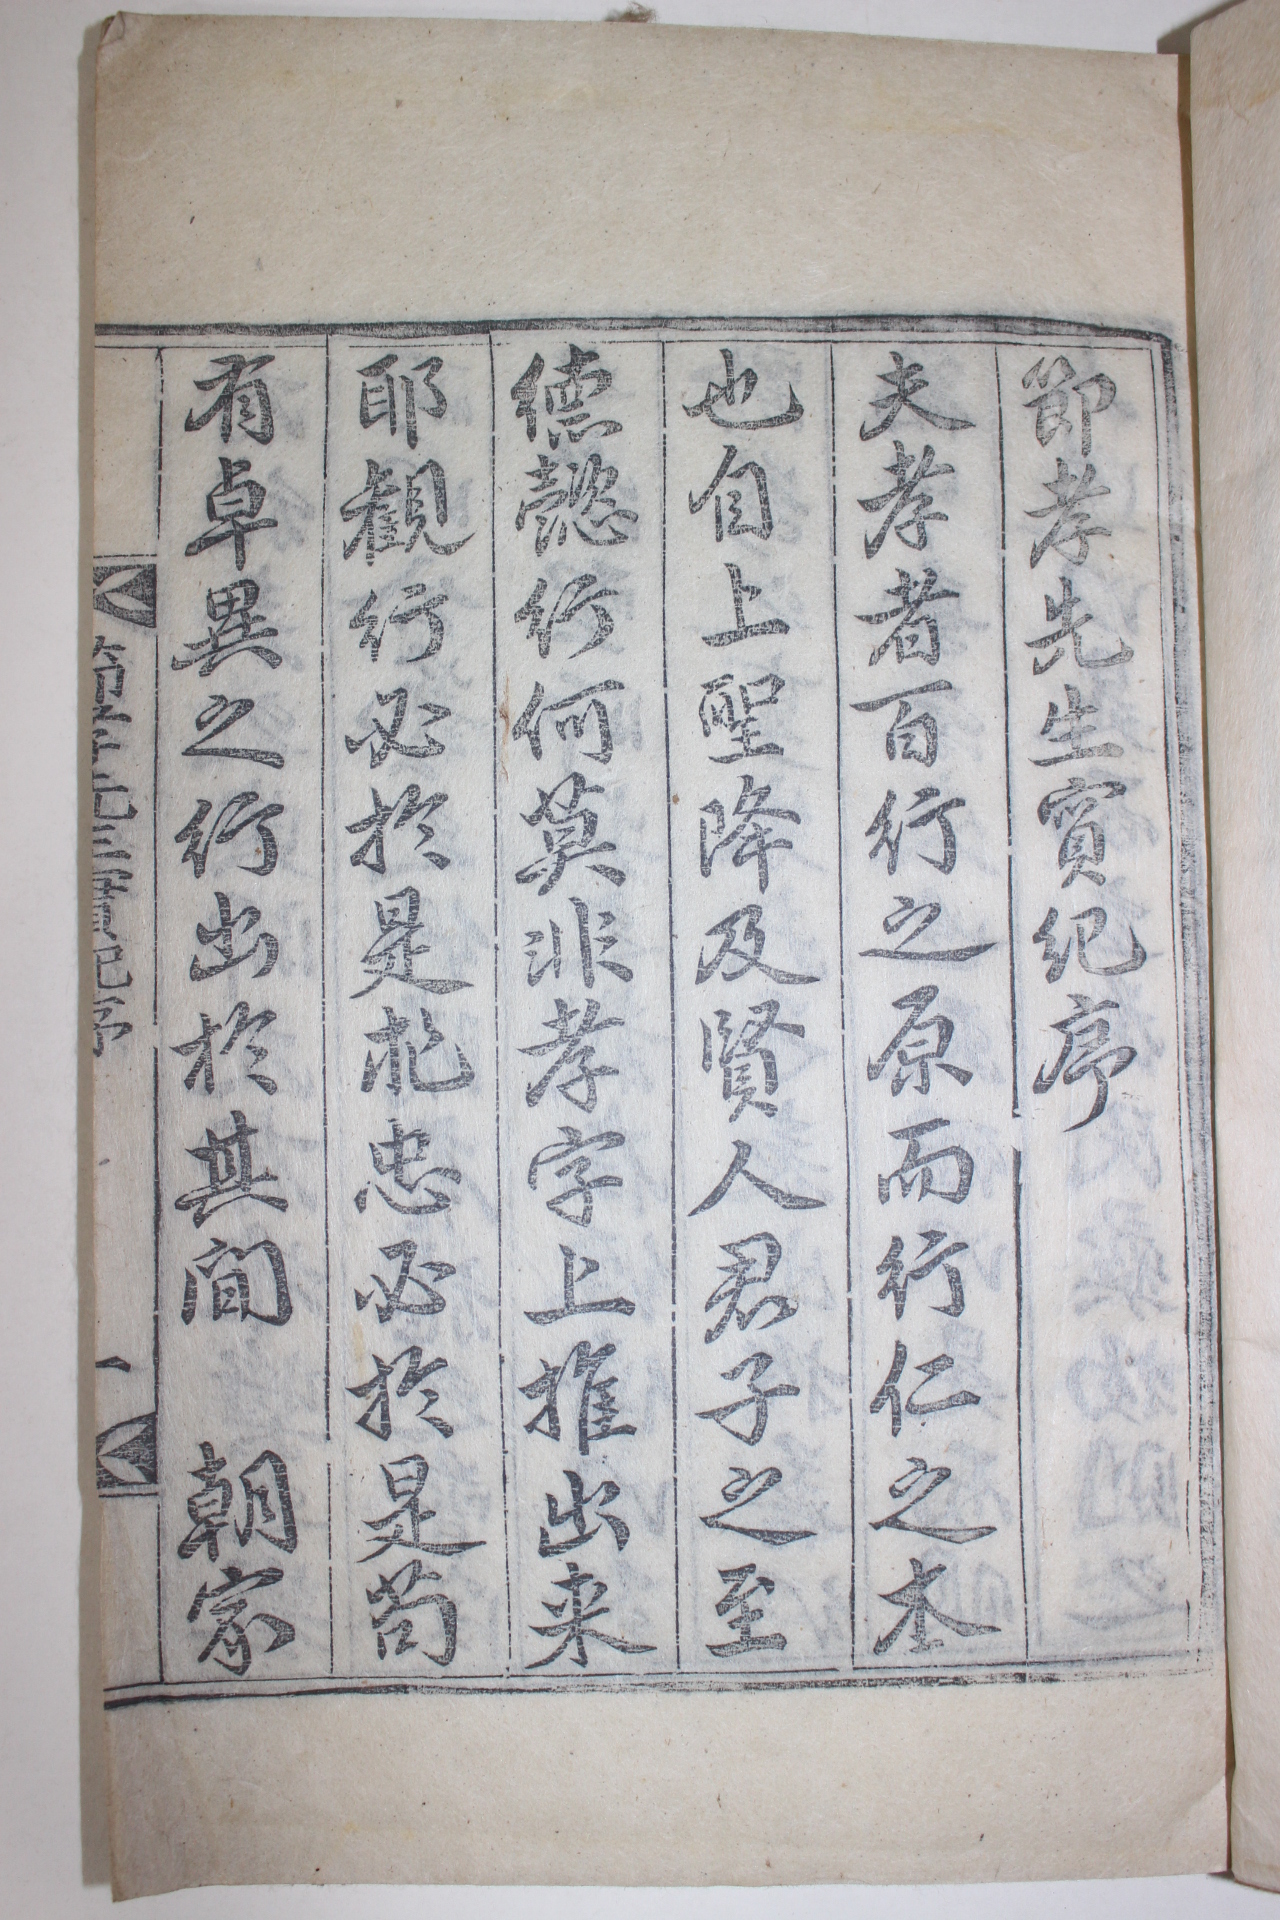 節孝先生實紀序
夫孝者百行之原而行仁之本
也自上聖降及賢人君子之至
德懿行何莫非孝字上推出来
耶觀行必於是求忠必於是苟
有卓異之行出於其間　朝家
節孝先生實紀序
一